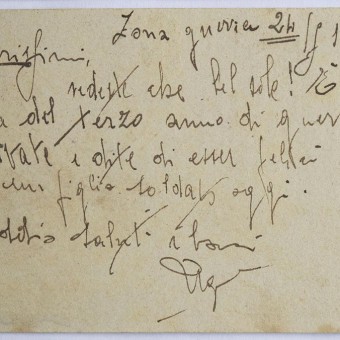 Zona guerra 24/5 1
rissimi,
vedeste che bel sole! È
a del terzo anno di guer
itate e dite di esser felici
un figlio soldato oggi.
saluti e baci